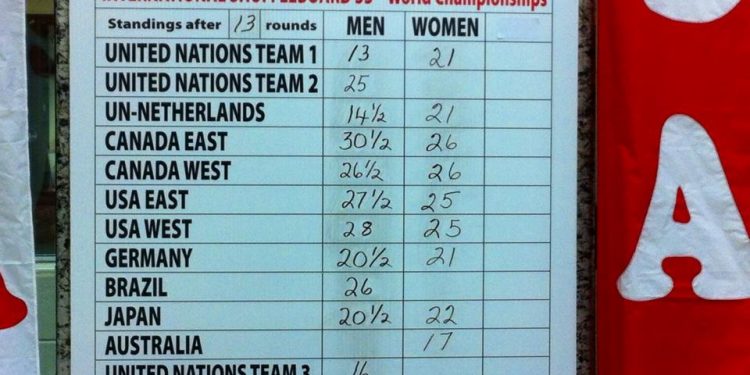 INTERNATIONAL SHUFFLEBOARD World Championships
Standings after 13 rounds MEN WOMEN
UNITED NATIONS TEAM 1 13 21
UNITED NATIONS TEAM 2 25
UN-NETHERLANDS 14½ 21
CANADA EAST 30½ 26
CANADA WEST 26½ 26
USA EAST 27½ 25
USA WEST 28 25
GERMANY 20½ 21
BRAZIL 26
JAPAN 20½ 22
AUSTRALIA 17
UNITED NATIONS TEAM 3 16
A